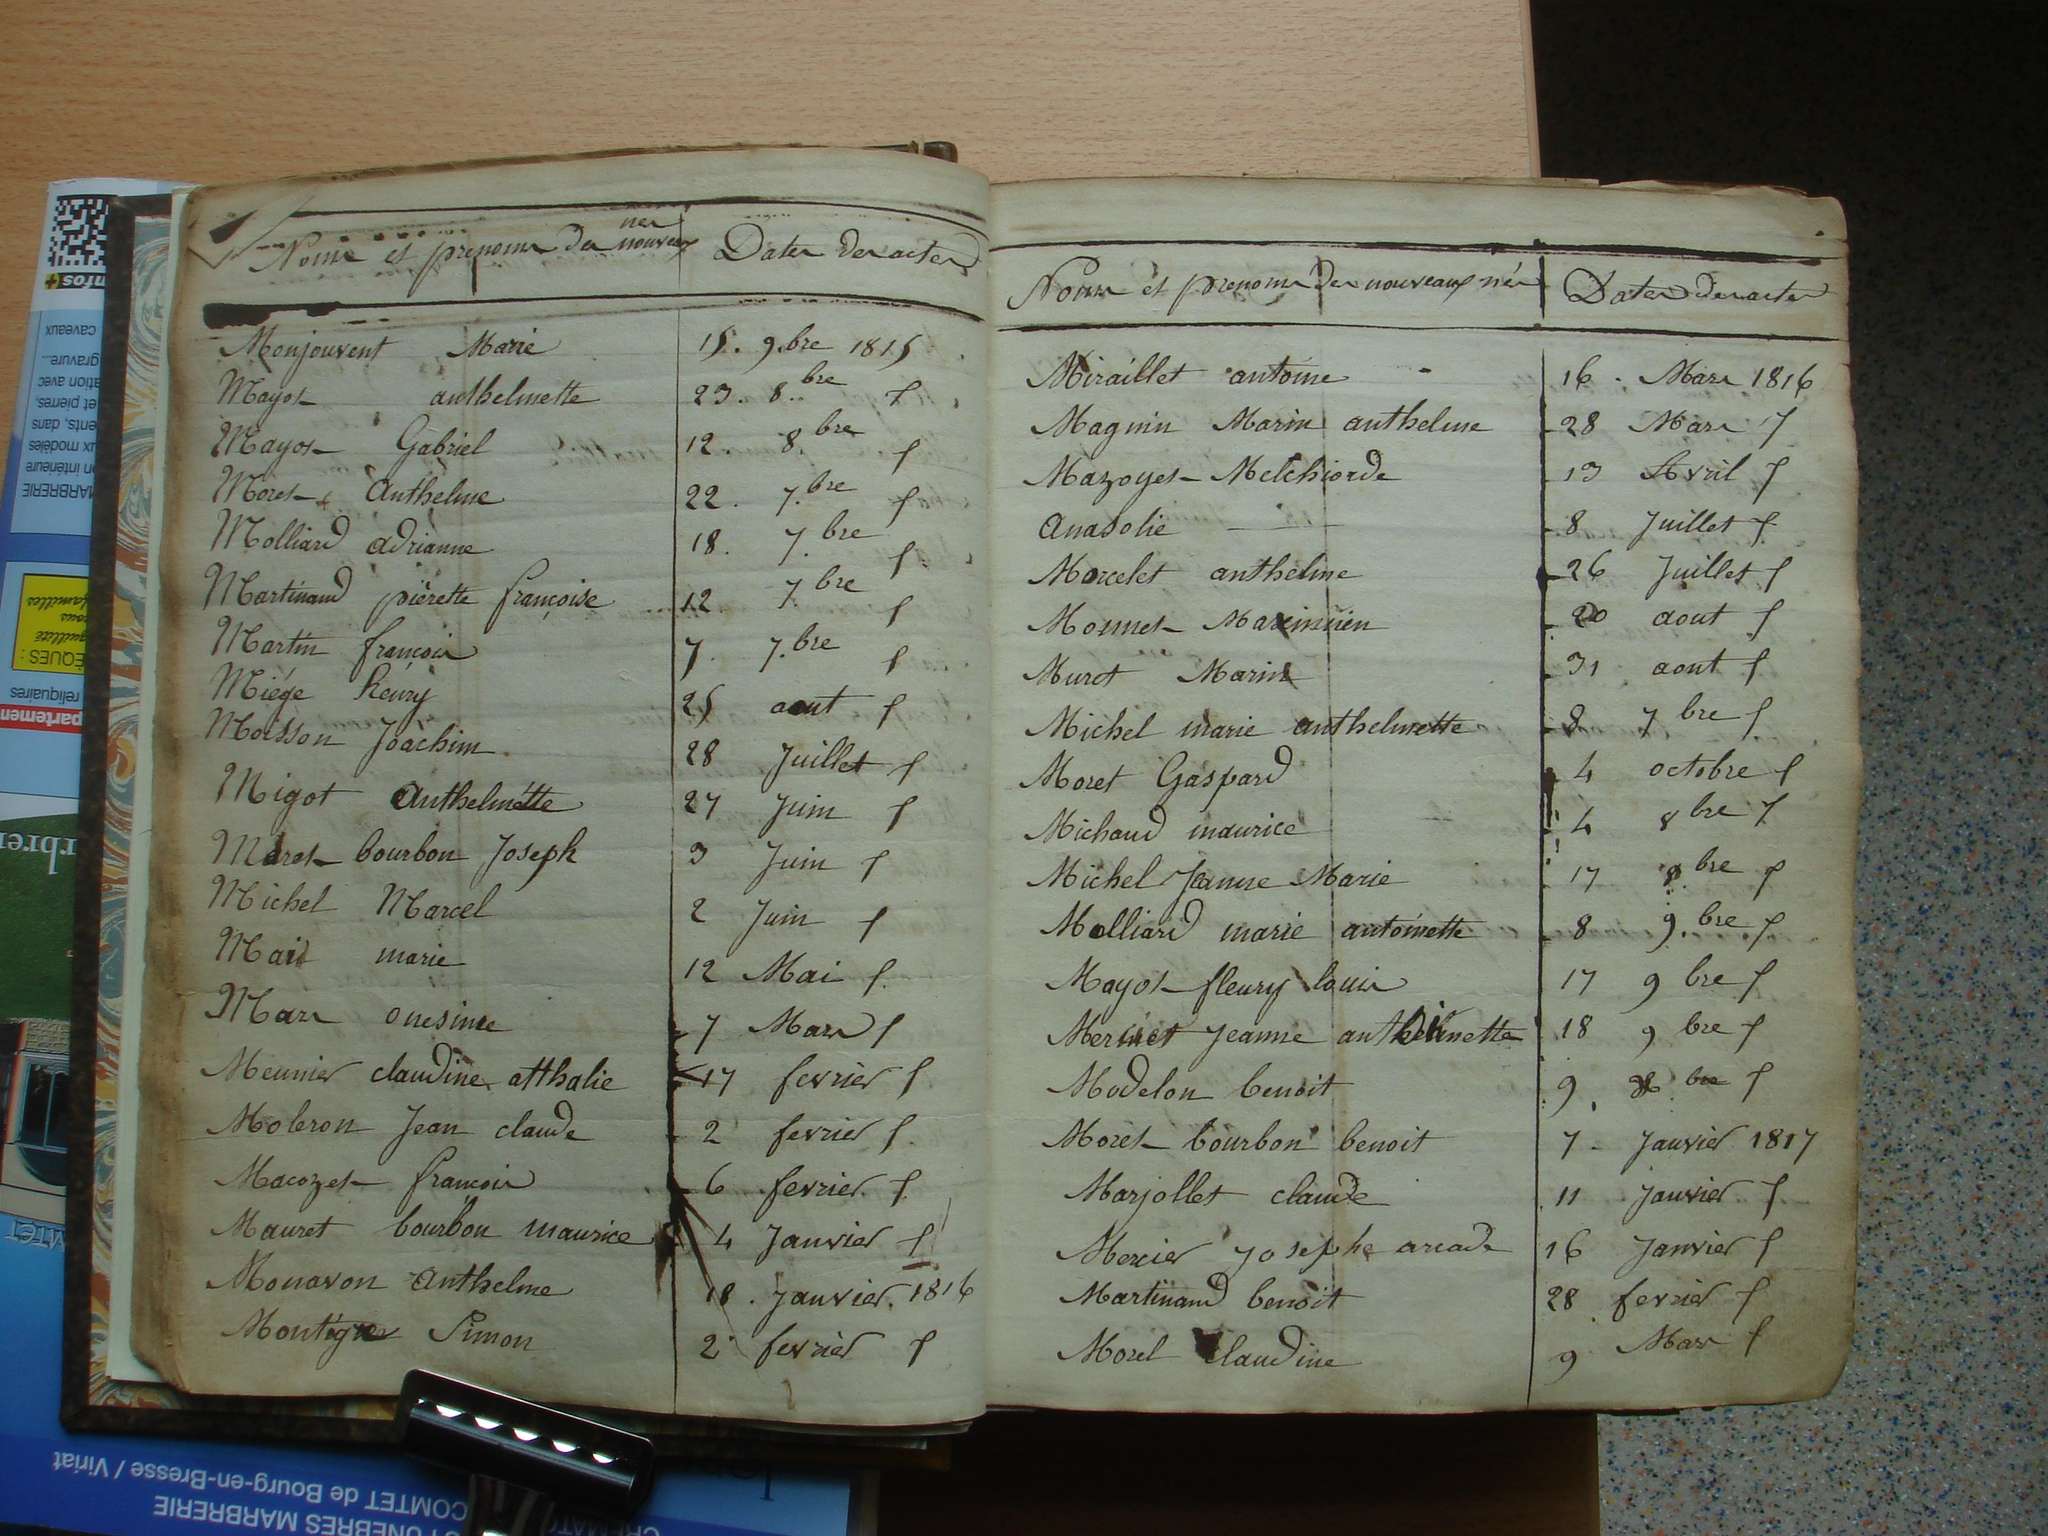 Noms et prenoms des nouveaux nes
Dates des actes
Monjouvent Marie 15. 9.bre 1815
Mayot anthelmette 23. 8.bre f
Mayot Gabriel 12. 8.bre f
Moret Anthelme 22. 7.bre f
Molliard adrianne 18. 7.bre f
Martinand pierette françoise 12. 7.bre f
Martin françois 7. 7.bre f
Miége henry 25 aout f
Moisson Joachim 28 Juillet f
Migot Anthelmette 27 Juin f
Moret bourbon Joseph 3 Juin f
Michel Marcel 2 Juin f
Mai marie 12 Mai f.
Mars onesime 7 Mars f
Meunier claudine atthalie 17 fevrier f
Moleron Jean claude 2 fevrier f.
Macozet francois 6 fevrier f.
Mauret bourbon maurice 4 Janvier f
Monavon anthelme 18. Janvier. 1816
Simon 2 fevrier f
Noms et prenoms des nouveaux nés
Dates des actes
Miraillet antoine 16. Mars 1816
Magnin Marin anthelme 28 Mars f
Mazoyet Melchiorde 13 Avril f
anasolie 8 Juillet f
Morcelet anthelme 26 Juillet f
Monnet Maximiien 20 aout f
Muret Marin 31 aout f
Michel marie anthelmette 8 7 bre f
Moret Gaspard 4 octobre f
Michaud maurice 4 8 bre f
Michel Jeanne Marie 17 8.bre f
Molliard marie antoinette 8 9.bre f
Mayot fleury louis 17 9 bre f
Jeanne anthelmette 18 9 bre f
Modelon benoit 9. bre f
Moret bourbon benoit 7 Janvier 1817
Marjollet claude 11 Janvier f
Mercier Josephe arcade 16 Janvier f
Martinand benoit 28 fevrier f
Morel claudine 9 Mars f
nfos+
caveaux
gravure...
ation avec
et pierres,
ents, dans
ux modèles
on intérieure
MARBRERIE
ÈQUES :
familles
reliquaires
partemen
COMTET de Bourg-en-Bresse / Viriat
FUNEBRES MARBRERIE